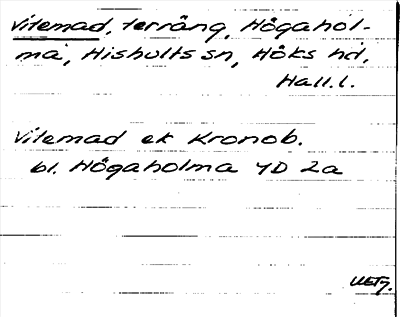 Vitemad, terräng, Högahol-
ma, Hishults sn, Höks hd,
Hall.l.
Vitemad ek Kronob.
bl. Högaholma YD 2a